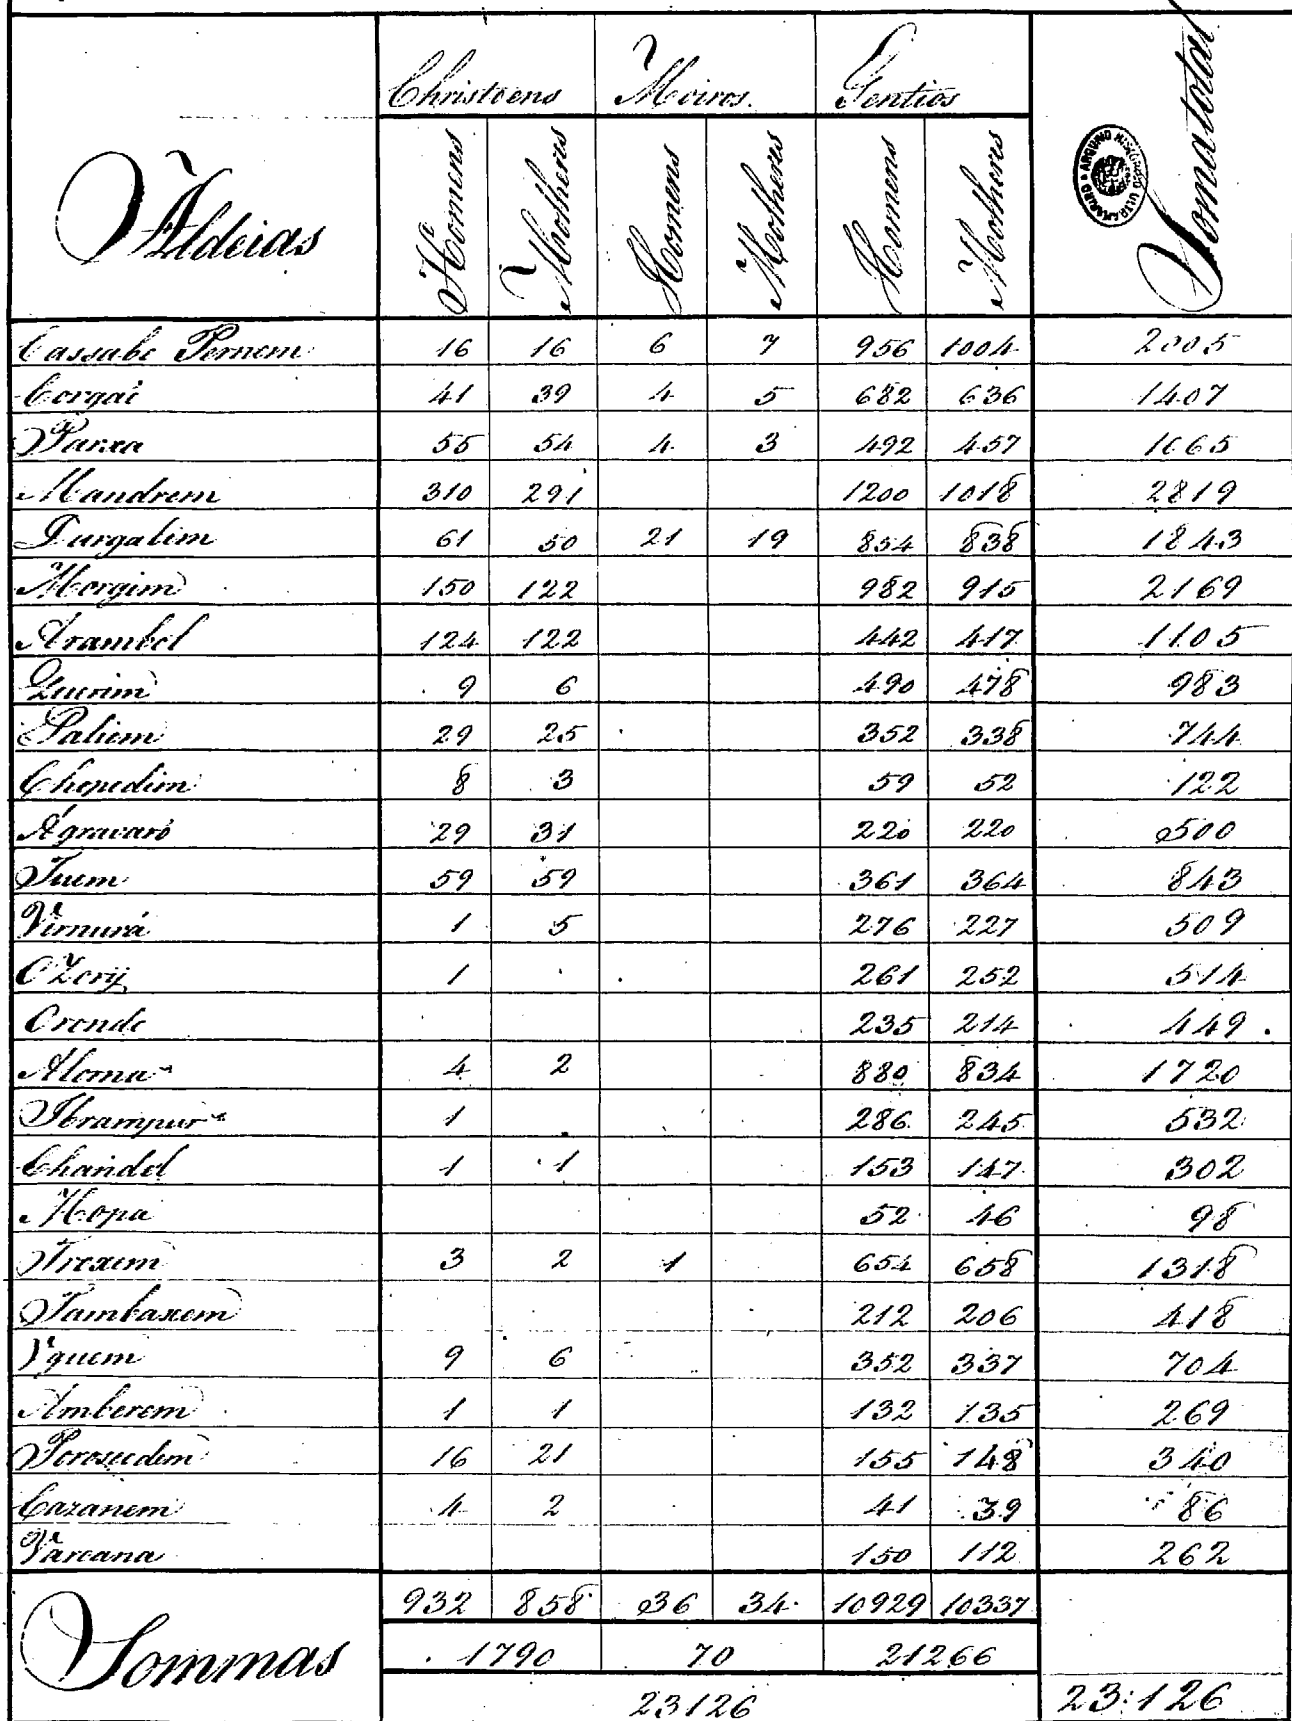 Christoens Moiros. Gentios
Aldeias Homens Molheres Homens Molheres Homens Molheres Somatotal
Cassabe Pernem 16 16 6 7 956 1004 2005
Corgai 41 39 4 5 682 636 1407
Parxa 55 54 4 3 492 457 1065
Mandrem 310 291 1200 1018 2819
Durgalim 61 50 21 19 854 838 1843
Morgim 150 122 982 915 2169
Arambol 124 122 442 417 1105
Querim 9 6 490 478 983
Paliem 29 25 352 338 744
Chopedim 8 3 59 52 122
Agravaró 29 31 220 220 500
Tuem 59 59 361 364 843
Virnurá 1 5 276 227 509
OZory 1 261 252 514
Oronde 235 214 449.
Alorna 4 2 880 834 1720
Ibrampur 1 286 245 532
Chandel 1 1 153 147 302
Mopa 52 46 98
Troxem 3 2 1 654 658 1318
Tambaxem 212 206 418
Uguem 9 6 352 337 704
Amberem 1 1 132 135 269
Poroscudem 16 21 155 148 340
Cazanem 4 2 41 39 86
Varcana 150 112 262
Sommas 932 858 36 34 10929 10337
1790 70 21266
23126 23:126